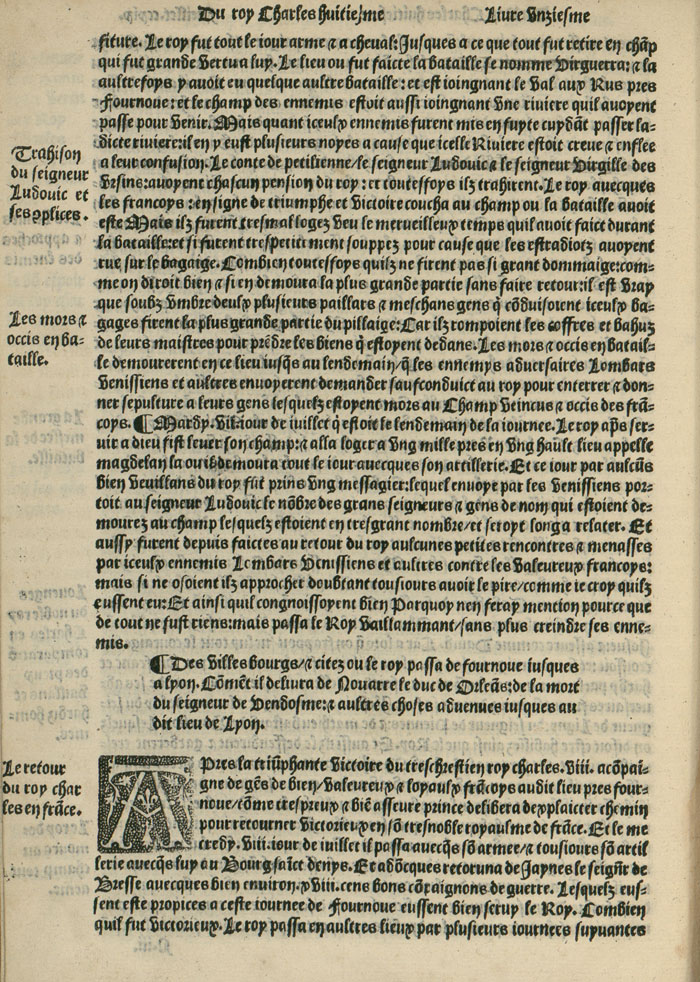 Du roy Charles huitiesme Livre Vnziesme
fiture. Le roy fut tout le iour arme & a cheual: Jusques a ce que tout fut retire en chãp
qui fut grande Vertu a luy. Le lieu ou fut faicte la bataille se nomme Virguerra: & la
aultresfoys y auoit eu quelque aultre bataille: et est ioingnant le Val aux Rus pres
Fournoue: et le champ des ennemis estoit aussi ioingnant Vne riuiere quil auoyent
passe pour Venir. Mais quant iceulx ennemis furent mis en fuyte cuydãt passer la-
dicte riuiere: il en y eust plusieurs noyes a cause que icelle Riuiere estoit creue & enflee
a leur confusion. Le conte de petilienne/le seigneur Ludouic & le seigneur Virgille des
Vrsins: auoyent chascun pension du roy: et toutesfoys ilz trahirent. Le roy auecques
les francoys: en signe de triumphe et Victoire coucha au champ ou la bataille auoit
este Mais ilz furent tresmal logez Veu le merueilleux temps quil auoit faict durant
la bataille: et si furent trespetitement souppez pour cause que les estradiotz auoyent
rue sur le bagaige. Combien toutesfoys quilz ne firent pas si grant dommaige: com-
me on diroit bien & si en demoura la plus grande partie sans faire retour: il est Vray
que soubz Vmbre deulx plusieurs paillars & meschans gens q̃ cõduisoient iceulx ba-
gages firent la plus grande partie du pillaige: Car ilz rompoient les coffres et bahuz
de leurs maistres pour prẽdre les biens q̃ estoyent dedans. Les mors & occis en batail-
le demourerent en ce lieu iusq̃s au lendemain/q̃ les ennemys aduersaires Lombars
Venissiens et aultres enuoyerent demander saufconduict au roy pour enterrer & don-
ner sepulture a leurs gens lesquelz estoyent mors au Champ Veincus & occis des frã-
coys. ¶ Mardy. vii. iour de iuillet q̃ estoit le lendemain de la iournee. Le roy apr̃s ser-
uir a dieu fist leuer son champ: & alla loger a Vng mille pres en Vng hault lieu appelle
magdelan la ou il demoura tout le iour auecques son artillerie. Et ce iour par aulcũs
bien Veuillans du roy fut prins Vng messagier: lequel enuoye par les Venissiens por-
toit au seigneur Ludouic le nõbre des grans seigneurs & gens de nom qui estoient de-
mourez au champ lesquelz estoient en tresgrant nombre/et seroyt long a relater. Et
aussy furent depuis faictes au retour du roy aulcunes petites rencontres & menasses
par iceulx ennemis Lombars Venissiens et aultres contre les Valeureux francoys:
mais si ne osoient ilz approcher doubtant tousiours auoir le pire/comme ie croy quilz
eussent eu: Et ainsi quil congnoissoyent bien Parquoy nen feray mention pource que
de tout ne fust riens: mais passa le Roy Vaillammant/sans plus creindre ses enne-
mis.
Trahison
du seigneur
Ludouic et
ses cõplices.
Les mors &
occis en ba-
taille.
¶ Des Villes bourgs/& citez ou le roy passa de fournoue iusques
a lyon. Cõmẽt il deliura de Nouarre le duc de Orleãs: de la mort
du seigneur de Vendosme: & aultres choses aduenues iusques au
dit lieu de Lyon.
Le retour
du roy char
les en frãce.
APres la triũphante Victoire du treschrestien roy charles. viii. acõpai-
gne de gẽs de bien/Valeureux & loyaulx frãcoys audit lieu pres four-
noue/cõme trespreux & biẽ asseure prince delibera dexplaicter chemin
pour retourner Victorieux en sõ tresnoble royaulme de frãce. Et le me
credy. viii. iour de iuillet il passa auecq̃s sõ armee/& tousiours sõ artil
lerie auecq̃s luy au Bourg saĩct denys. Et adõcques retourna de Jaynes le seign̄r de
Bresse auecques bien enuiron. xviii. cens bons cõpaignons de guerre. Lesquelz eus-
sent este propices a ceste iournee de Fournoue eussent bien seruy le Roy. Combien
quil fut Victorieux. Le roy passa en aultres lieux par plusieurs iournees suyuantes